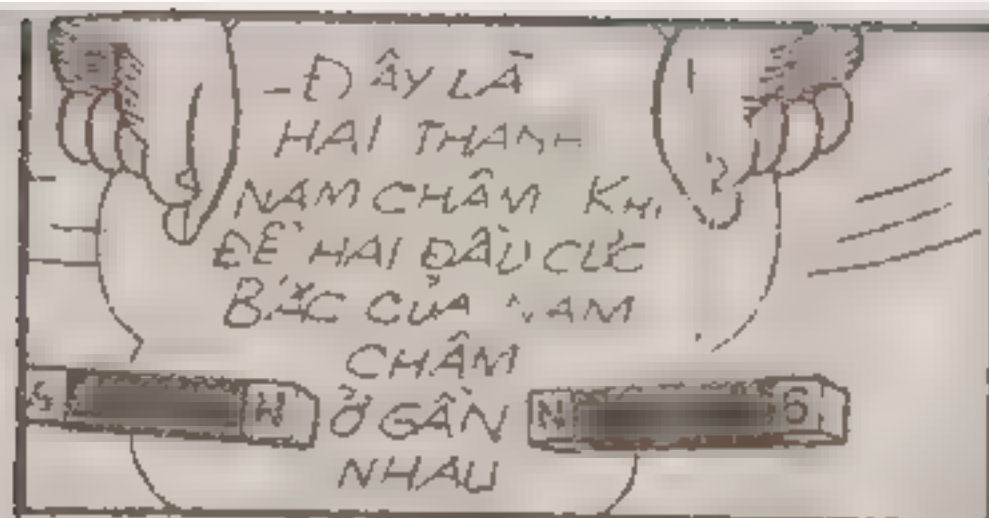 - ĐÂY LÀ
HAI THANH
NAM CHÂM KHI
ĐỂ HAI ĐẦU CỰC
BẮC CỦA NAM
CHÂM
S N Ở GẦN N S
NHAU